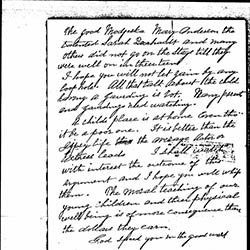 the good Modjeska Mary Anderson the
talented Sarah Bernhardt and many
others did not go on the stage till they
were well on in their teens
I hope you will not let Gain by any
loop hole. All that talk about the child
being a Guarding is bot. Many parents
and guardians need watching.
A child's place is at home even tho
it be a poor one. It is better than the
Life the average Actor or
Actress leads I shall watch
with interest the outcome of this
argument and I hope you will whip
them. The moral teaching of our
young children and their physical
well being is of more consequence than
the dollars they earn.
God speed you in the good work